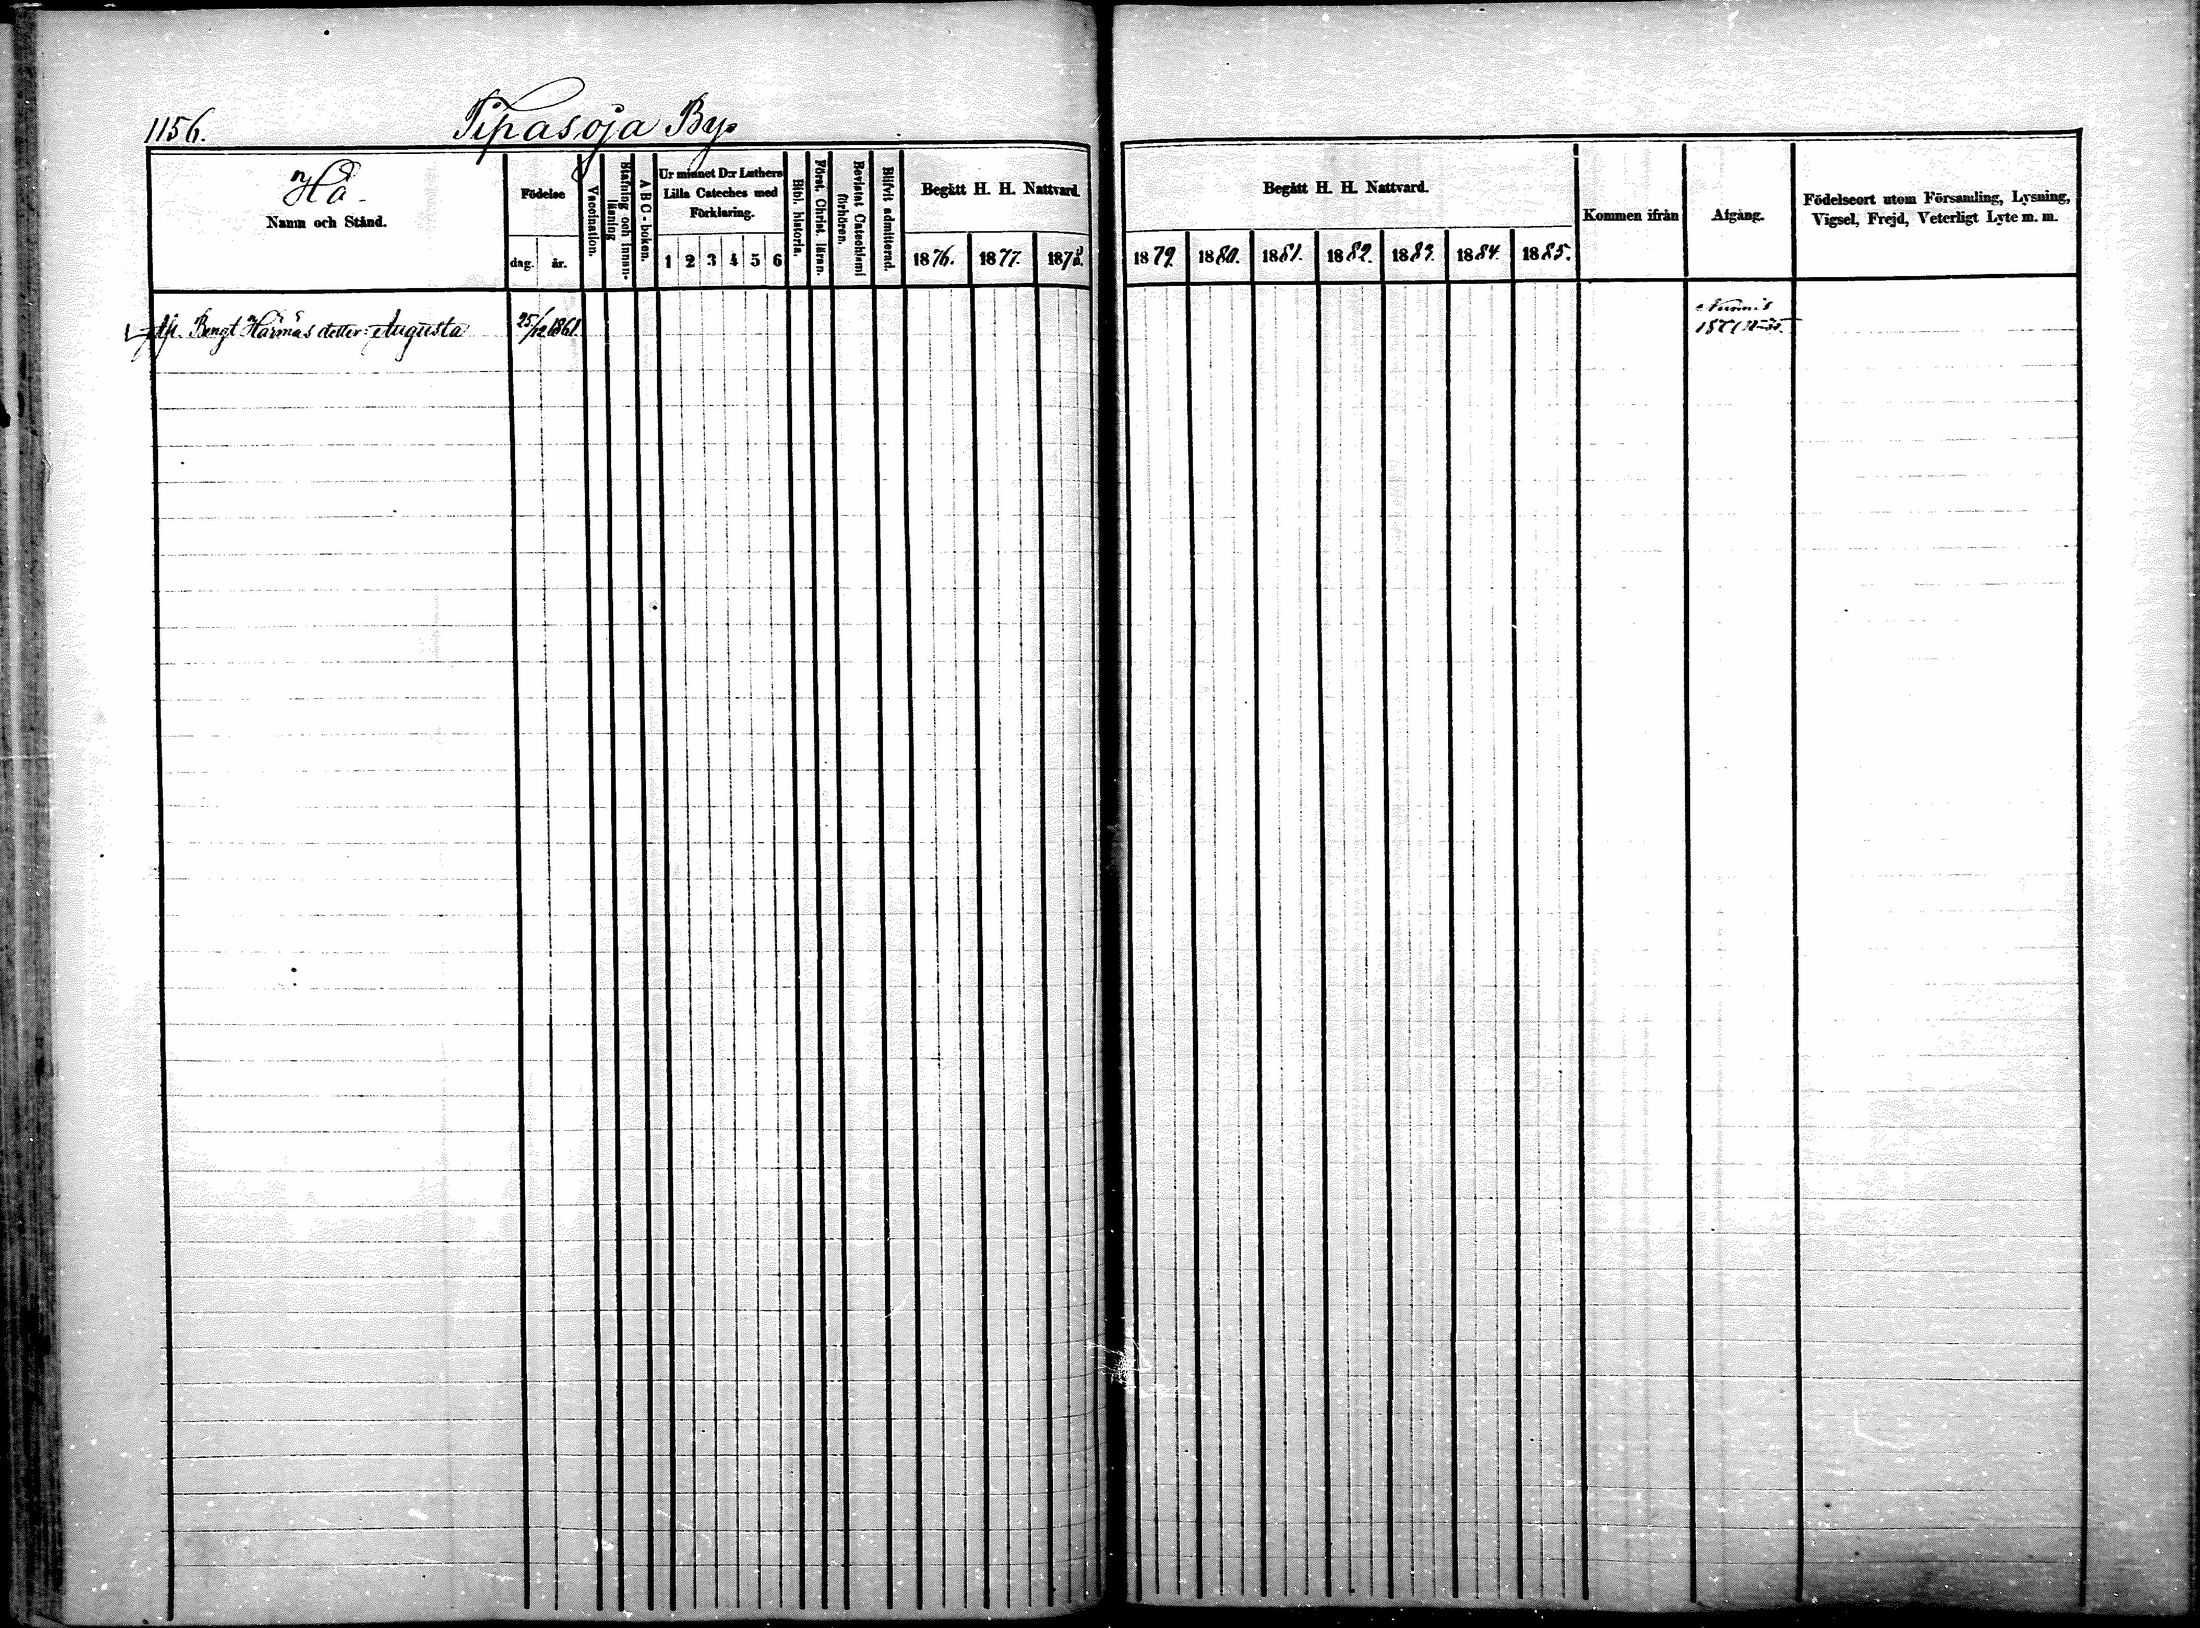 1156. Tipasoja By.
Hå.
Namn och Stånd.
Födelse
dag. år.
Vaccination.
Stafning och innan-
läsning
ABC-boken.
Ur minnet D:r Luthers
Lilla Cateches med
Förklaring.
1 2 3 4 5 6
Bibl. historia.
Först. Christ. läran.
Bevistat Catechismi
förhören.
Blifvit admitterad.
Begått H. H. Nattvard.
1876. 1877. 1878.
Begått H. H. Nattvard.
1879. 1880. 1881. 1882. 1883. 1884. 1885.
Kommen ifrån
Afgång.
Födelseort utom Församling, Lysning,
Vigsel, Frejd, Veterligt Lyte m. m.
Bengt Härmäs dotter: Augusta 25/12 1861.
Nurmis